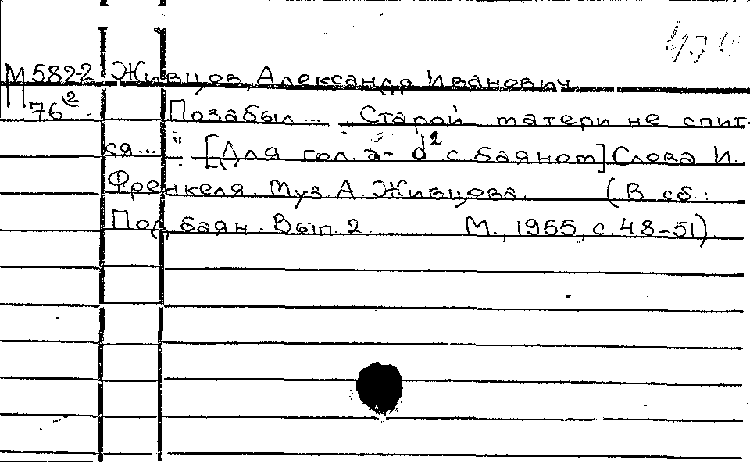 М582-2 Живцов, Александр Иванович
76² Позабыл... "Старой матери не спит-
ся..." [Для гол. а - d² с баяном] Слова И.
Френкеля. Муз. А. Живцова. (В сб.:
Под баян. Вып. 2. М., 1955, с. 48-51).